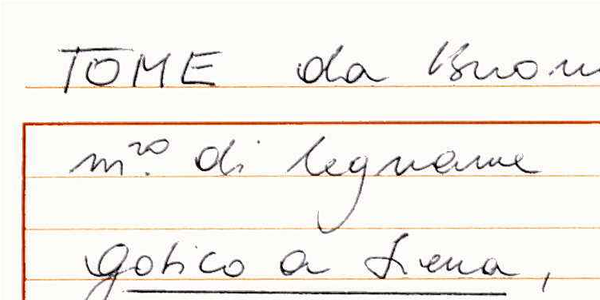 TOME da
m.ro di legname
gotico a Siena,